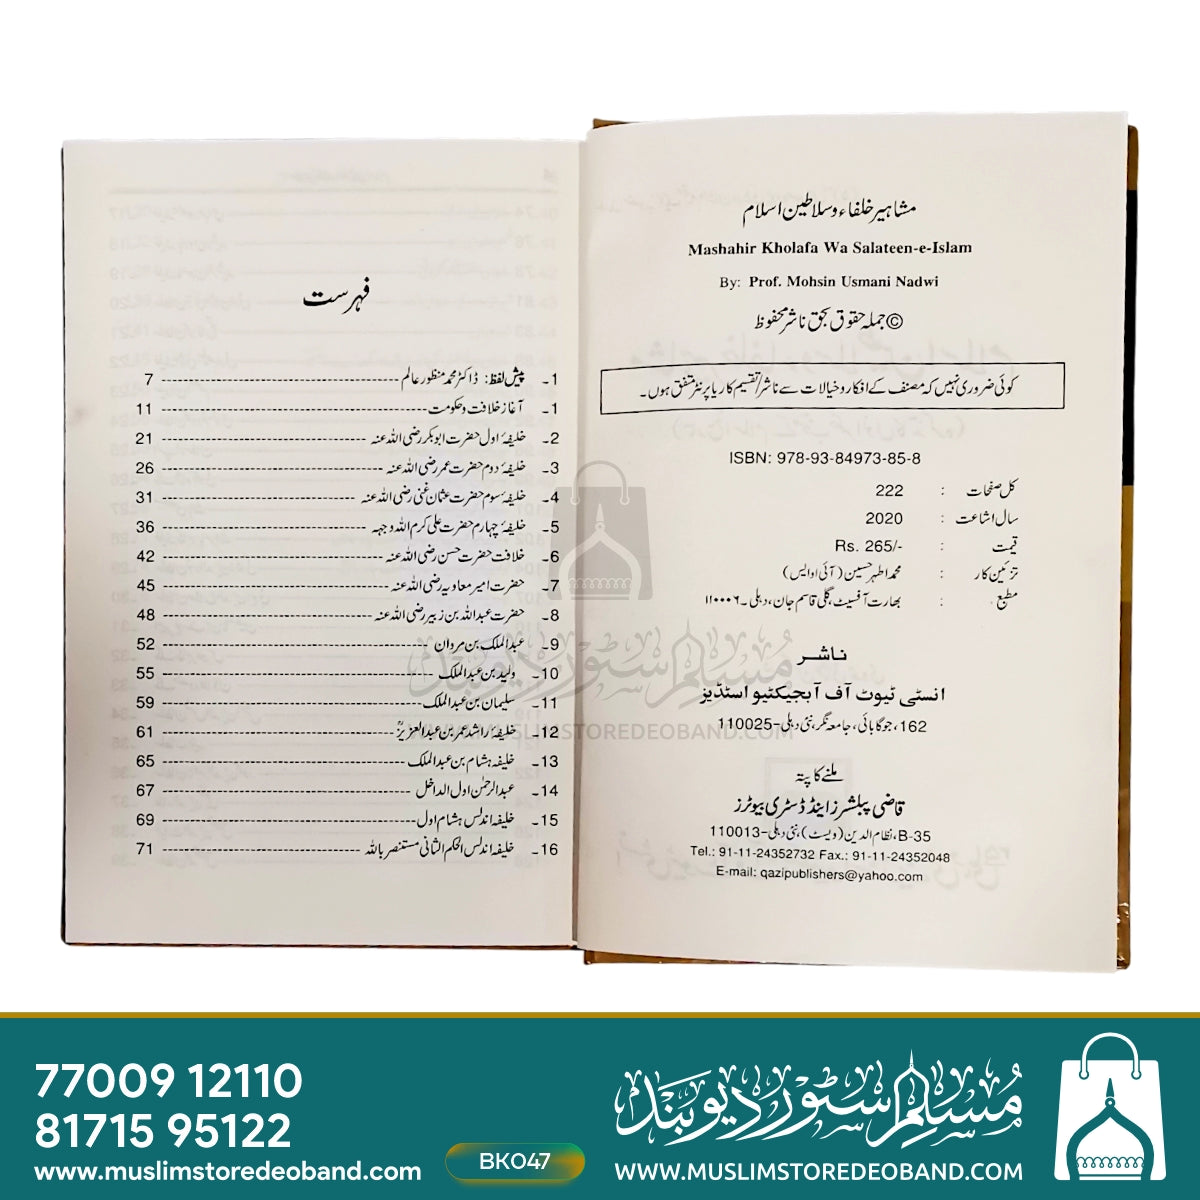 مشاہیر خلفاء وسلاطین اسلام
Mashahir Kholafa Wa Salateen-e-Islam
By: Prof. Mohsin Usmani Nadwi
© جملہ حقوق بحق ناشر محفوظ
کوئی ضروری نہیں کہ مصنف کے افکار وخیالات سے ناشر/تقسیم کار یا پرنٹر متفق ہوں۔
ISBN: 978-93-84973-85-8
کل صفحات : 222
سال اشاعت : 2020
قیمت : Rs. 265/-
تزئین کار : محمد اطہر حسین (آئی او ایس)
مطبع : بھارت آفسیٹ، گلی قاسم جان، دہلی۔۱۱۰۰۰۶
ناشر
انسٹی ٹیوٹ آف آبجیکٹیو اسٹڈیز
162، جوگابائی، جامعہ نگر، نئی دہلی-110025
ملنے کا پتہ
قاضی پبلشرز اینڈ ڈسٹری بیوٹرز
B-35، نظام الدین (ویسٹ)، نئی دہلی-110013
Tel.: 91-11-24352732 Fax.: 91-11-24352048
E-mail: qazipublishers@yahoo.com
فہرست
1۔ پیش لفظ: ڈاکٹر محمد منظور عالم 7
1۔ آغاز خلافت وحکومت 11
2۔ خلیفۂ اول حضرت ابوبکر رضی اللہ عنہ 21
3۔ خلیفۂ دوم حضرت عمر رضی اللہ عنہ 26
4۔ خلیفۂ سوم حضرت عثمان غنی رضی اللہ عنہ 31
5۔ خلیفۂ چہارم حضرت علی کرم اللہ وجہہ 36
6۔ خلافت حضرت حسن رضی اللہ عنہ 42
7۔ حضرت امیر معاویہ رضی اللہ عنہ 45
8۔ حضرت عبداللہ بن زبیر رضی اللہ عنہ 48
9۔ عبدالملک بن مروان 52
10۔ ولید بن عبدالملک 55
11۔ سلیمان بن عبدالملک 59
12۔ خلیفۂ راشد عمر بن عبدالعزیزؒ 61
13۔ خلیفہ ہشام بن عبدالملک 65
14۔ عبدالرحمٰن اول الداخل 67
15۔ خلیفہ اندلس ہشام اول 69
16۔ خلیفہ اندلس الحکم الثانی مستنصر باللہ 71
مسلم سٹور دیوبند
WWW.MUSLIMSTOREDEOBAND.COM
77009 12110
81715 95122
www.muslimstoredeoband.com
BK047
مسلم سٹور دیوبند
WWW.MUSLIMSTOREDEOBAND.COM